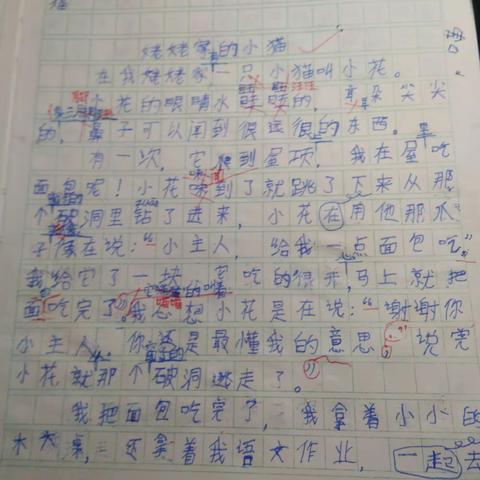 姥姥家的小猫
在我姥姥家有一只小猫叫小花。
小花的眼睛水睡睡的,耳朵尖尖
的,鼻子可以闻到很远很的东西。
有一次,它爬到屋顶,我在屋吃
面包呢!小花嗅到了就跳了下来从那
个破洞里钻了进来,小花在用他那爪
子像在说:“小主人,给我一点面包吃。”
我给它了一块,它吃的很香,马上就把
面吃完了。我心想小花是在说:“谢谢你
小主人,你还是最懂我的意思。”说完
小花就那个破洞逃走了。
我把面包吃完了,我拿着小小的
木头来,还拿着我语文作业,一起去